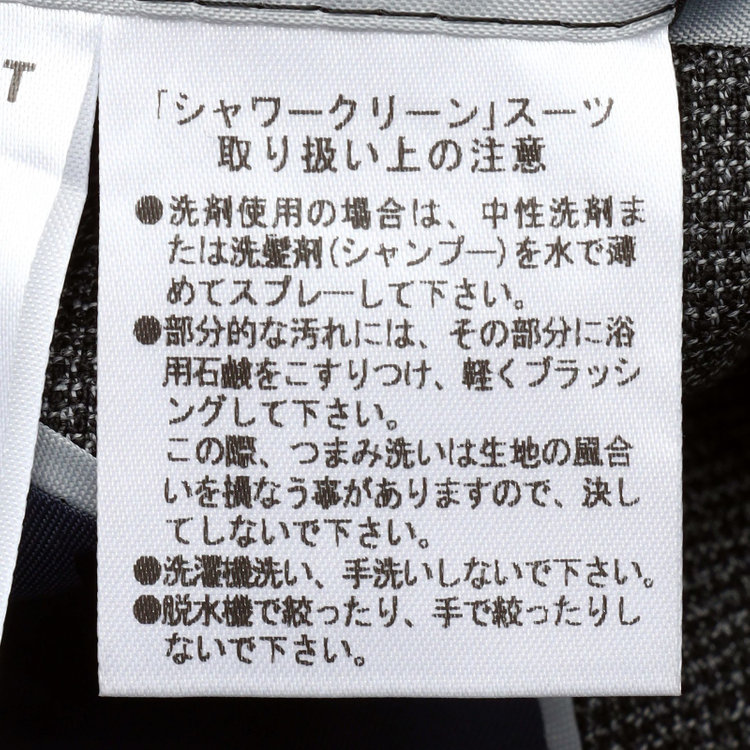 T
「シャワークリーン」スーツ
取り扱い上の注意
●洗剤使用の場合は、中性洗剤ま
たは洗髪剤(シャンプー)を水で薄
めてスプレーして下さい。
●部分的な汚れには、その部分に浴
用石鹸をこすりつけ、軽くブラッシ
ングして下さい。
この際、つまみ洗いは生地の風合
いを損なう事がありますので、決し
てしないで下さい。
●洗濯機洗い、手洗いしないで下さい。
●脱水機で絞ったり、手で絞ったりし
ないで下さい。